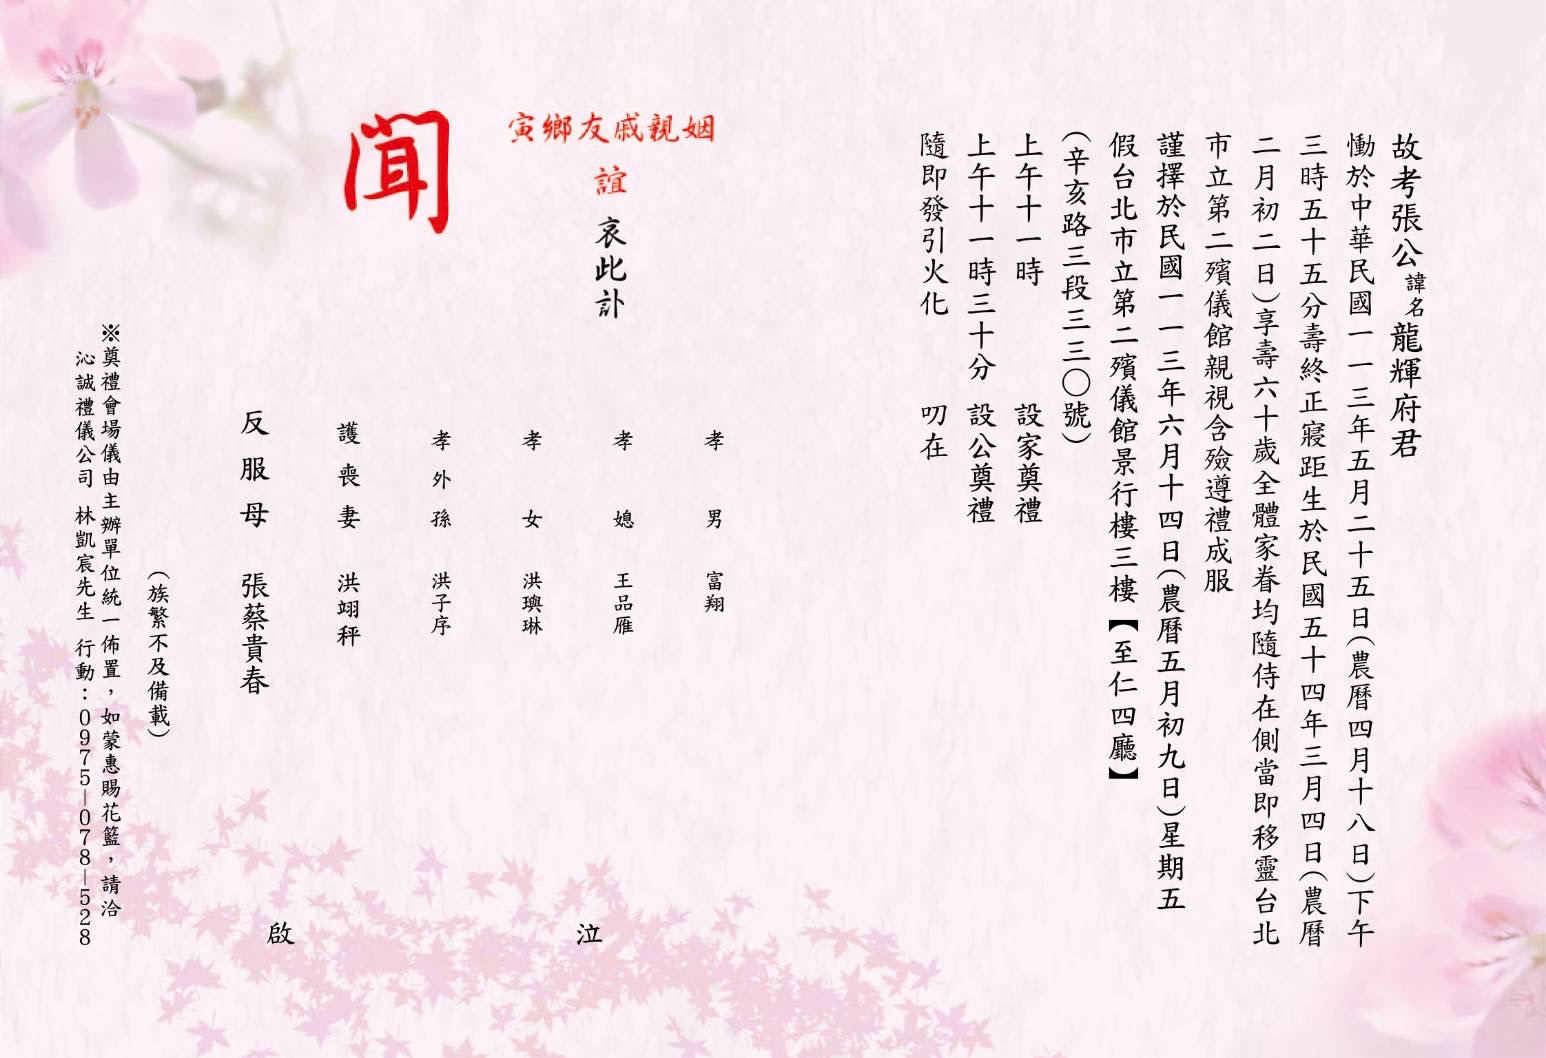 故考張公諱名龍輝府君
慟於中華民國一一三年五月二十五日(農曆四月十八日)下午
三時五十五分壽終正寢距生於民國五十四年三月四日(農曆
二月初二日)享壽六十歲全體家眷均隨侍在側當即移靈台北
市立第二殯儀館親視含殮遵禮成服
謹擇於民國一一三年六月十四日(農曆五月初九日)星期五
假台北市立第二殯儀館景行樓三樓【至仁四廳】
(辛亥路三段三三〇號)
上午十一時 設家奠禮
上午十一時三十分 設公奠禮
隨即發引火化 叨在
姻親戚友鄉寅
誼 哀此訃
聞
孝男 富翔
孝媳 王品雁
孝女 洪璵琳
孝外孫 洪子序
護喪妻 洪翊秤
反服母 張蔡貴春
泣
啟
(族繁不及備載)
※奠禮會場儀由主辦單位統一佈置,如蒙惠賜花籃,請洽
沁誠禮儀公司 林凱宸先生 行動:0975-078-528